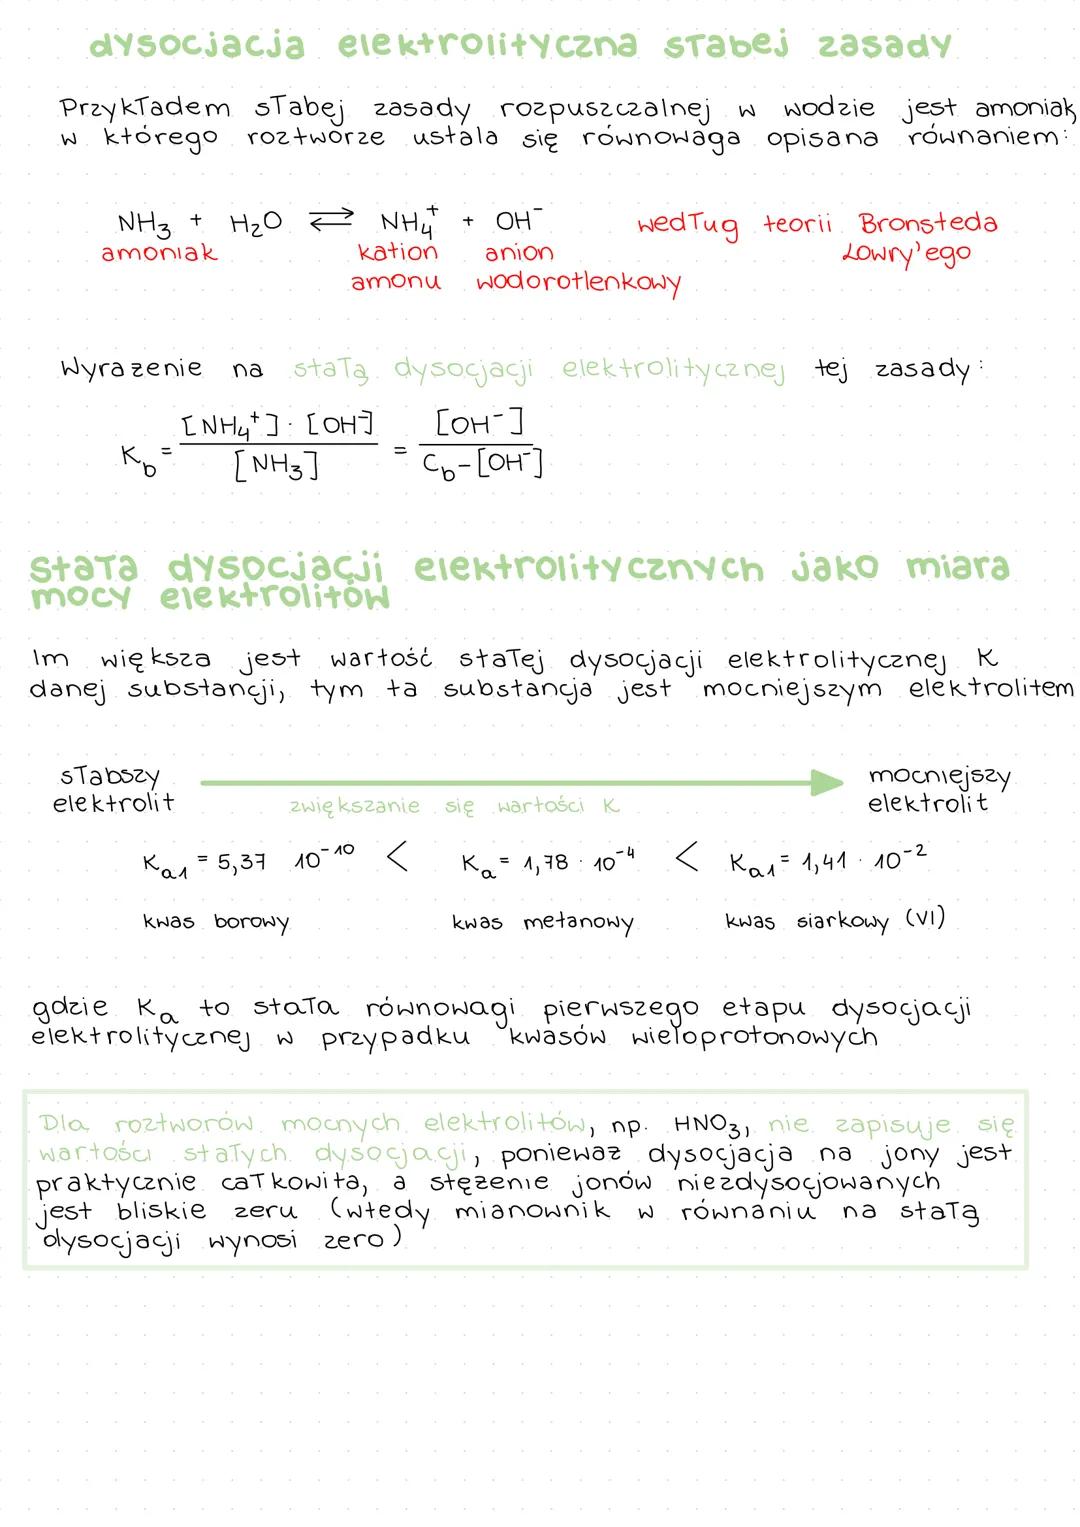 dysocjacja elektrolityczna słabej zasady
Przykładem słabej zasady rozpuszczalnej w wodzie jest amoniak,
w którego roztworze ustala się równowaga opisana równaniem:
NH₃ + H₂O ⇄ NH₄⁺ + OH⁻ według teorii Bronsteda
amoniak kation anion Lowry'ego
amonu wodorotlenkowy
Wyrażenie na stałą dysocjacji elektrolitycznej tej zasady:
K_b = [NH₄⁺] · [OH⁻] / [NH₃] = [OH⁻] / C_b-[OH⁻]
stała dysocjacji elektrolitycznych jako miara
mocy elektrolitów
Im większa jest wartość stałej dysocjacji elektrolitycznej K
danej substancji, tym ta substancja jest mocniejszym elektrolitem
słabszy mocniejszy
elektrolit zwiększanie się wartości K elektrolit
K_a1 = 5,37 10⁻¹⁰ < K_a = 1,78 · 10⁻⁴ < K_a1 = 1,41 · 10⁻²
kwas borowy kwas metanowy kwas siarkowy (VI)
gdzie K_a to stała równowagi pierwszego etapu dysocjacji
elektrolitycznej w przypadku kwasów wieloprotonowych
Dla roztworów mocnych elektrolitów, np. HNO₃, nie zapisuje się
wartości stałych dysocjacji, ponieważ dysocjacja na jony jest
praktycznie całkowita, a stężenie jonów niezdysocjowanych
jest bliskie zeru (wtedy mianownik w równaniu na stałą
dysocjacji wynosi zero)